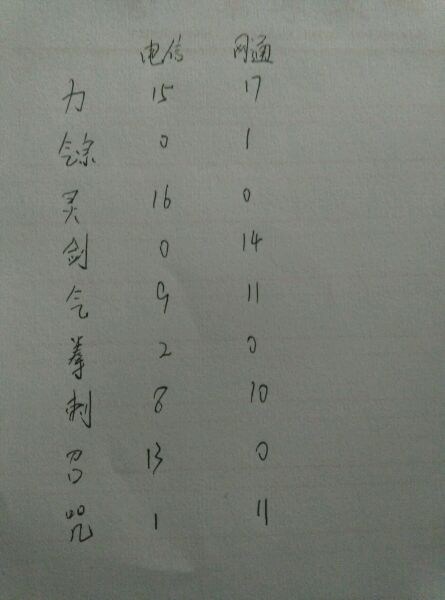 电信 网通
力 15 17
0 1
灵 16 0
剑 0 14
气 9 11
拳 2 0
刺 8 10
召 13 0
咒 1 11